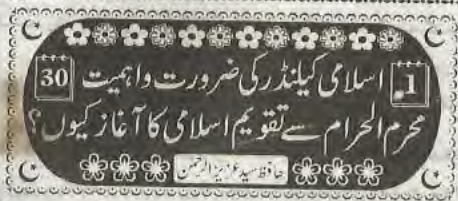 1 اسلامی کیلنڈر کی ضرورت و اہمیت 30
محرم الحرام سے تقویم اسلامی کا آغاز کیوں؟
حافظ سید عزیز الرحمن